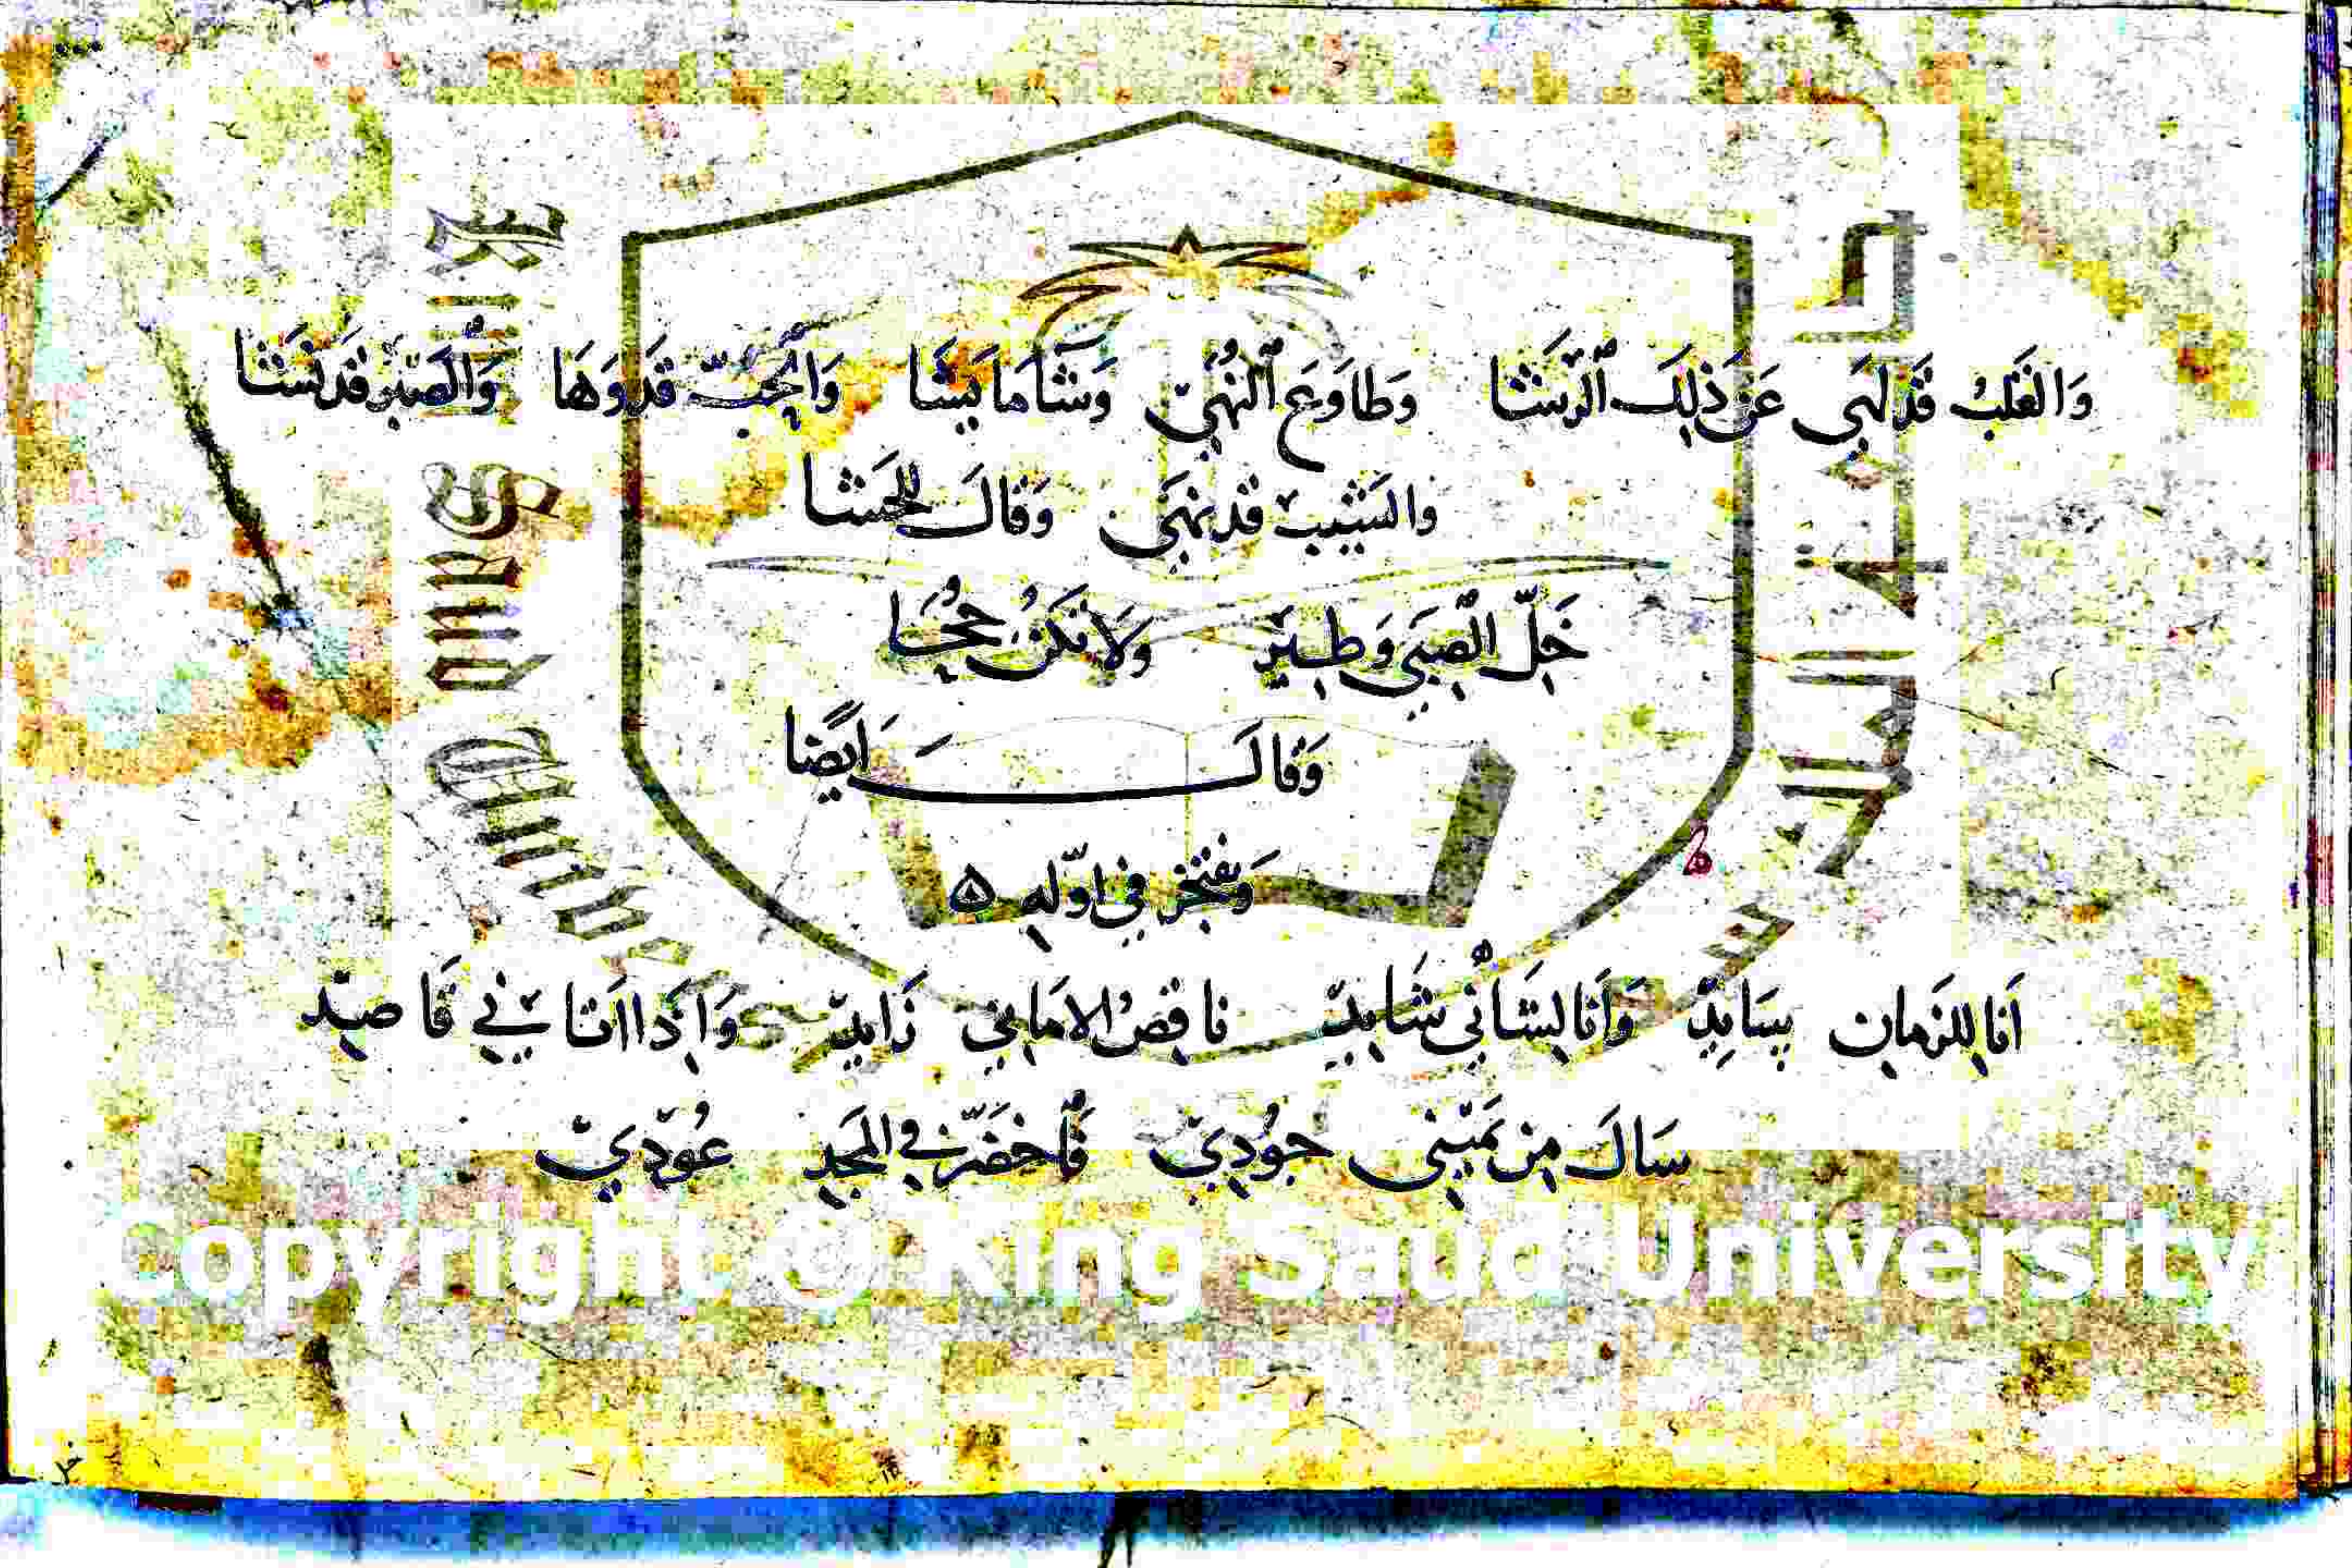 وَالقَلبُ قَد لَهَى عَن ذٰلِكَ الرَّشَا وَطَاوَعَ النُّهَى وَشَا مَا يَشَا وَالحُبّ قَد وَهَا وَالصَّبرُ قَد نَشَا
وَالشَيبُ قَد نَهَى وَقَالَ لِلحَشَا
خَلِّ الصِبَى وَطِير وَلَا تَكُن
وَقَالَ اَيضًا
وَيَفتَخِر فِي اَوّلِهِ ٥
اَنَا لِلزَمَانِ سَايِد وَاَنَا لِشَانِي شَايِد نَاقِصُ الاَمَانِي زَايِد وَاِذَا اَتَانِي قَاصِد
سَالَ مِن يَمِينِي جُودِي فَاخضَرَّ فِي المَجدِ عُودِي
Copyright © King Saud University
King Saud University